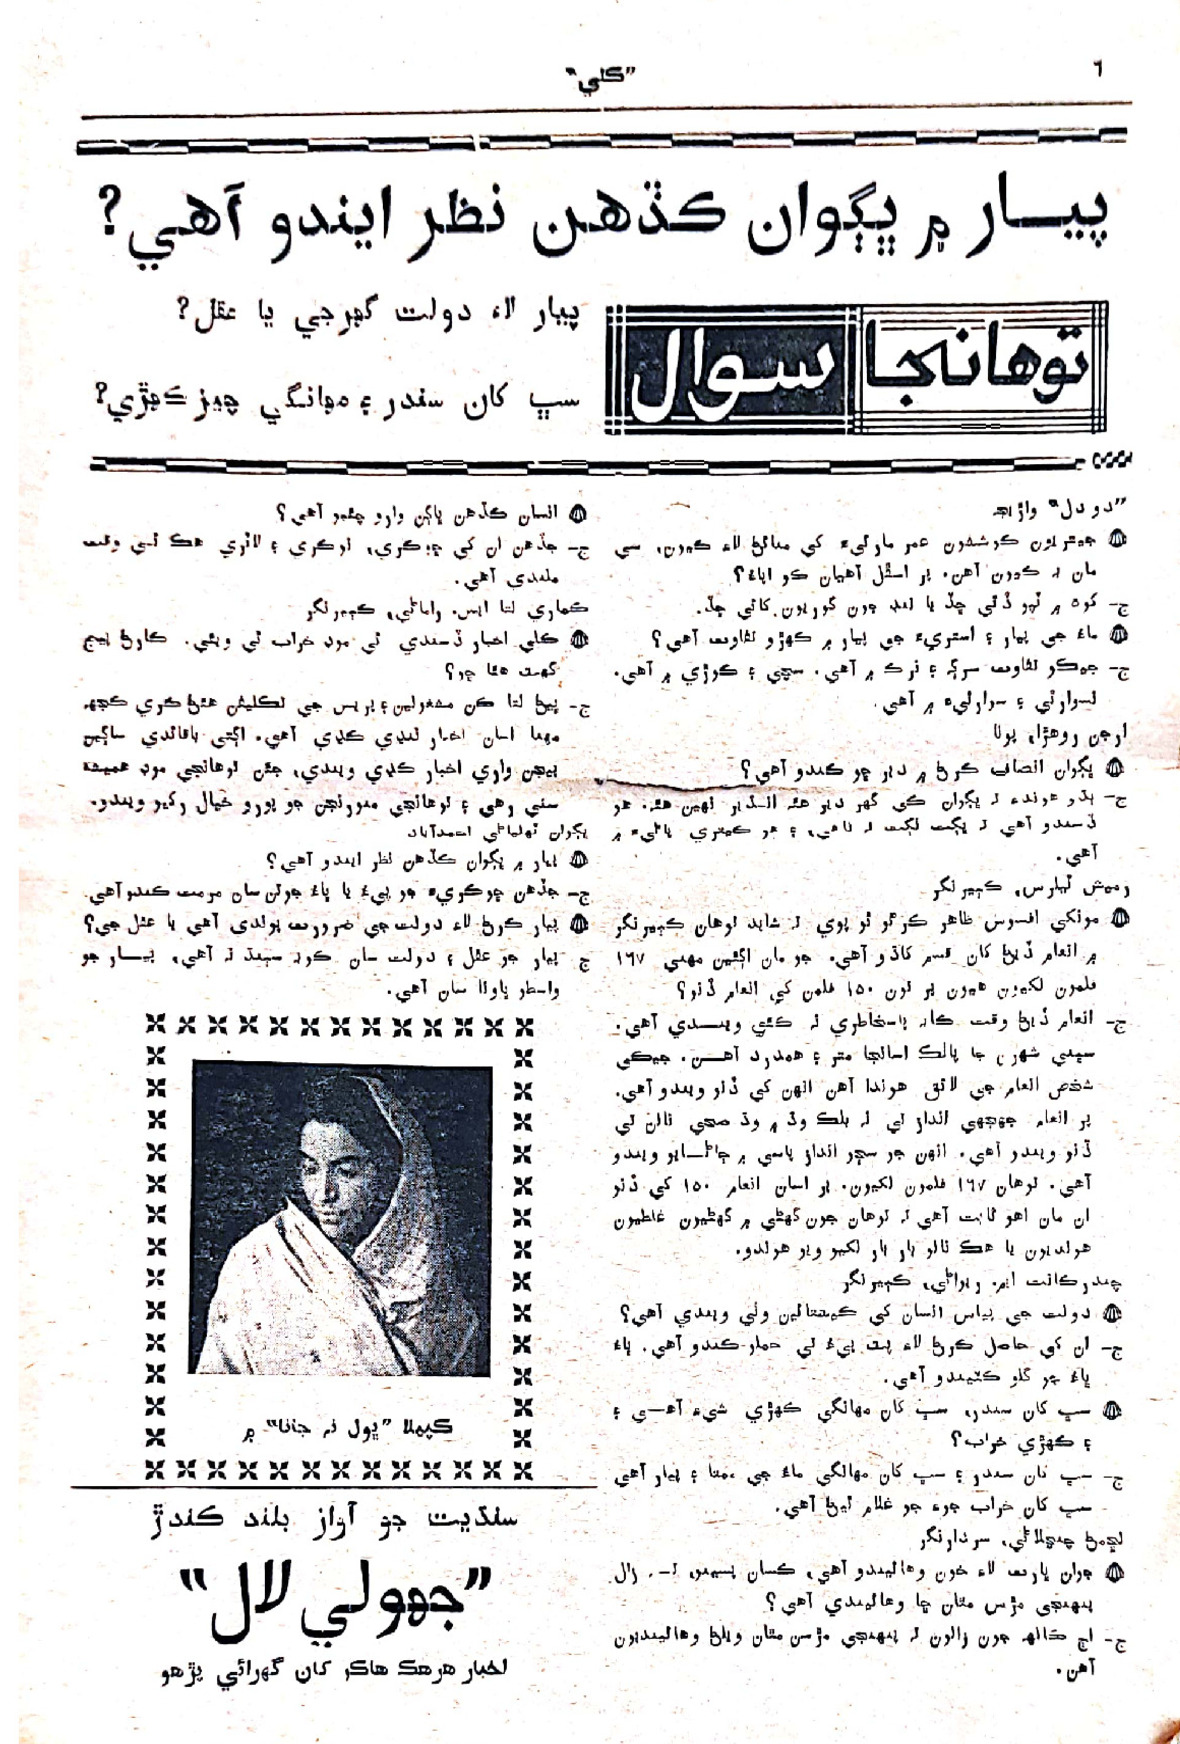 ٦
”ڪلي“
پيار ۾ ڀڳوان ڪڏهن نظر ايندو آهي؟
توهانجا سوال
پيار لاءِ دولت گهرجي يا عقل؟
سڀ کان سندر ۽ مهانگي چيز ڪهڙي؟
”دو دل“
عمر ماڻيءَ کي مٽائڻ لاءِ ڪيون، سي
ج-
ماءُ جي پيار ۽ استريءَ جي پيار ۾ ڪهڙو تفاوت آهي؟
ج- جيڪو تفاوت سرڳ ۽ نرڪ ۾ آهي. سچي ۽ ڪوڙي ۾ آهي.
۾ آهي.
ارجن روهڙا، پونا
ڀڳوان انصاف ڪرڻ ۾ دير ڇو ڪندو آهي؟
ج- ٻڌو هوندء ته ڀڳوان کي گهر دير هئه انڌير نهين هئه. هو
ڏسندو آهي ته ڀڳت ڀڳت ته ناهي، ۽ هو
آهي.
ڪٻيرنگر
مونکي افسوس ظاهر ڪرڻو ٿو پوي ته شايد توهان ڪٻيرنگر
۾ انعام ڏيڻ کان قسم کاڌو آهي. جو مان اڳئين مهني ١٦٧
فلمون لکيون هيون پر تون ١٥٠ فلمن کي انعام ڏنو؟
ج- انعام ڏيڻ وقت ڪا به پاسخاطري نه ڪئي ويندي آهي.
سڀني شهرن جا پالڪ اسانجا متر ۽ همدرد آهن. جيڪي
شخص انعام جي لائق هوندا آهن انهن کي ڏنو ويندو آهي.
پر انعام جهجهي انداز تي نه بلڪ وڌ ۾ وڌ صحي نالن تي
ڏنو ويندو آهي. انهن جو سچو انداز پاسي ۾ ڄاڻايو ويندو
آهي. توهان ١٦٧ فلمون لکيون. پر اسان انعام ١٥٠ کي ڏنو
ان مان اهو ثابت آهي ته توهان جون گهڻي ۾ گهڻيون غلطيون
هونديون يا هڪ نالو بار بار لکيو ويو هوندو.
چندرڪانت ايم. ڪٻيرنگر
دولت جي پياس انسان کي ڪيستائين وٺي ويندي آهي؟
ج- ان کي حاصل ڪرڻ لاءِ پٽ پيءُ تي حملو ڪندو آهي. ڀاءُ
ڀاءُ جو گلو ڪٽيندو آهي.
سڀ کان سندر، سڀ کان مهانگي ڪهڙي شيءِ آهي ۽
۽ ڪهڙي خراب؟
ج- سڀ کان سندر ۽ سڀ کان مهانگي ماءُ جي ممتا ۽ پيار آهي
سڀ کان خراب جوءِ جو غلام ٿيڻ آهي.
سردارنگر
جوان ڀارت لاءِ خون وهائيندو آهي، ڪسان پسينو، ته زال
پنهنجي مڙس مٿان ڇا وهائيندي آهي؟
ج- اڄ ڪالهه جون زالون ته پنهنجي مڙسن مٿان ويلڻ وهائينديون
آهن.
انسان ڪڏهن ڀاڳن وارو چئبو آهي؟
ج- جڏهن ان کي ڇوڪري، نوڪري ۽ لاٽري هڪ ئي وقت
ملندي آهي.
ڪماري لتا ايس. ڪٻيرنگر
ڪلي اخبار ڏسندي ئي موڊ خراب ٿي ويئي. ڪارڻ پيج
گهٽ هئا ڇو؟
ج- ڀيڻ لتا ڪن مشغولين ۽ پريس جي تڪليفن هئڻ ڪري ڪجهه
مهنا اسان اخبار ننڍي ڪڍي آهي. اڳتي باقائدي ساڳين
پيجن واري اخبار ڪڍي ويندي، جئن توهانجي موڊ هميشه
سٺي رهي ۽ توهانجي منورنجن جو پورو خيال رکيو ويندو.
ڀڳوان احمدآباد
پيار ۾ ڀڳوان ڪڏهن نظر ايندو آهي؟
ج- جڏهن ڇوڪريءَ جو پيءُ يا ڀاءُ جوتن سان مرمت ڪندو آهي.
پيار ڪرڻ لاءِ دولت جي ضرورت پوندي آهي يا عقل جي؟
ج پيار جو عقل ۽ دولت سان ڪوبه سٻنڌ نه آهي، پيار جو
واسطو ڀاونا سان آهي.
”ڀول نہ جانا“ ۾
سنڌيت جو آواز بلند ڪندڙ
”جهولي لال“
اخبار هرهڪ هاڪر کان گهرائي پڙهو